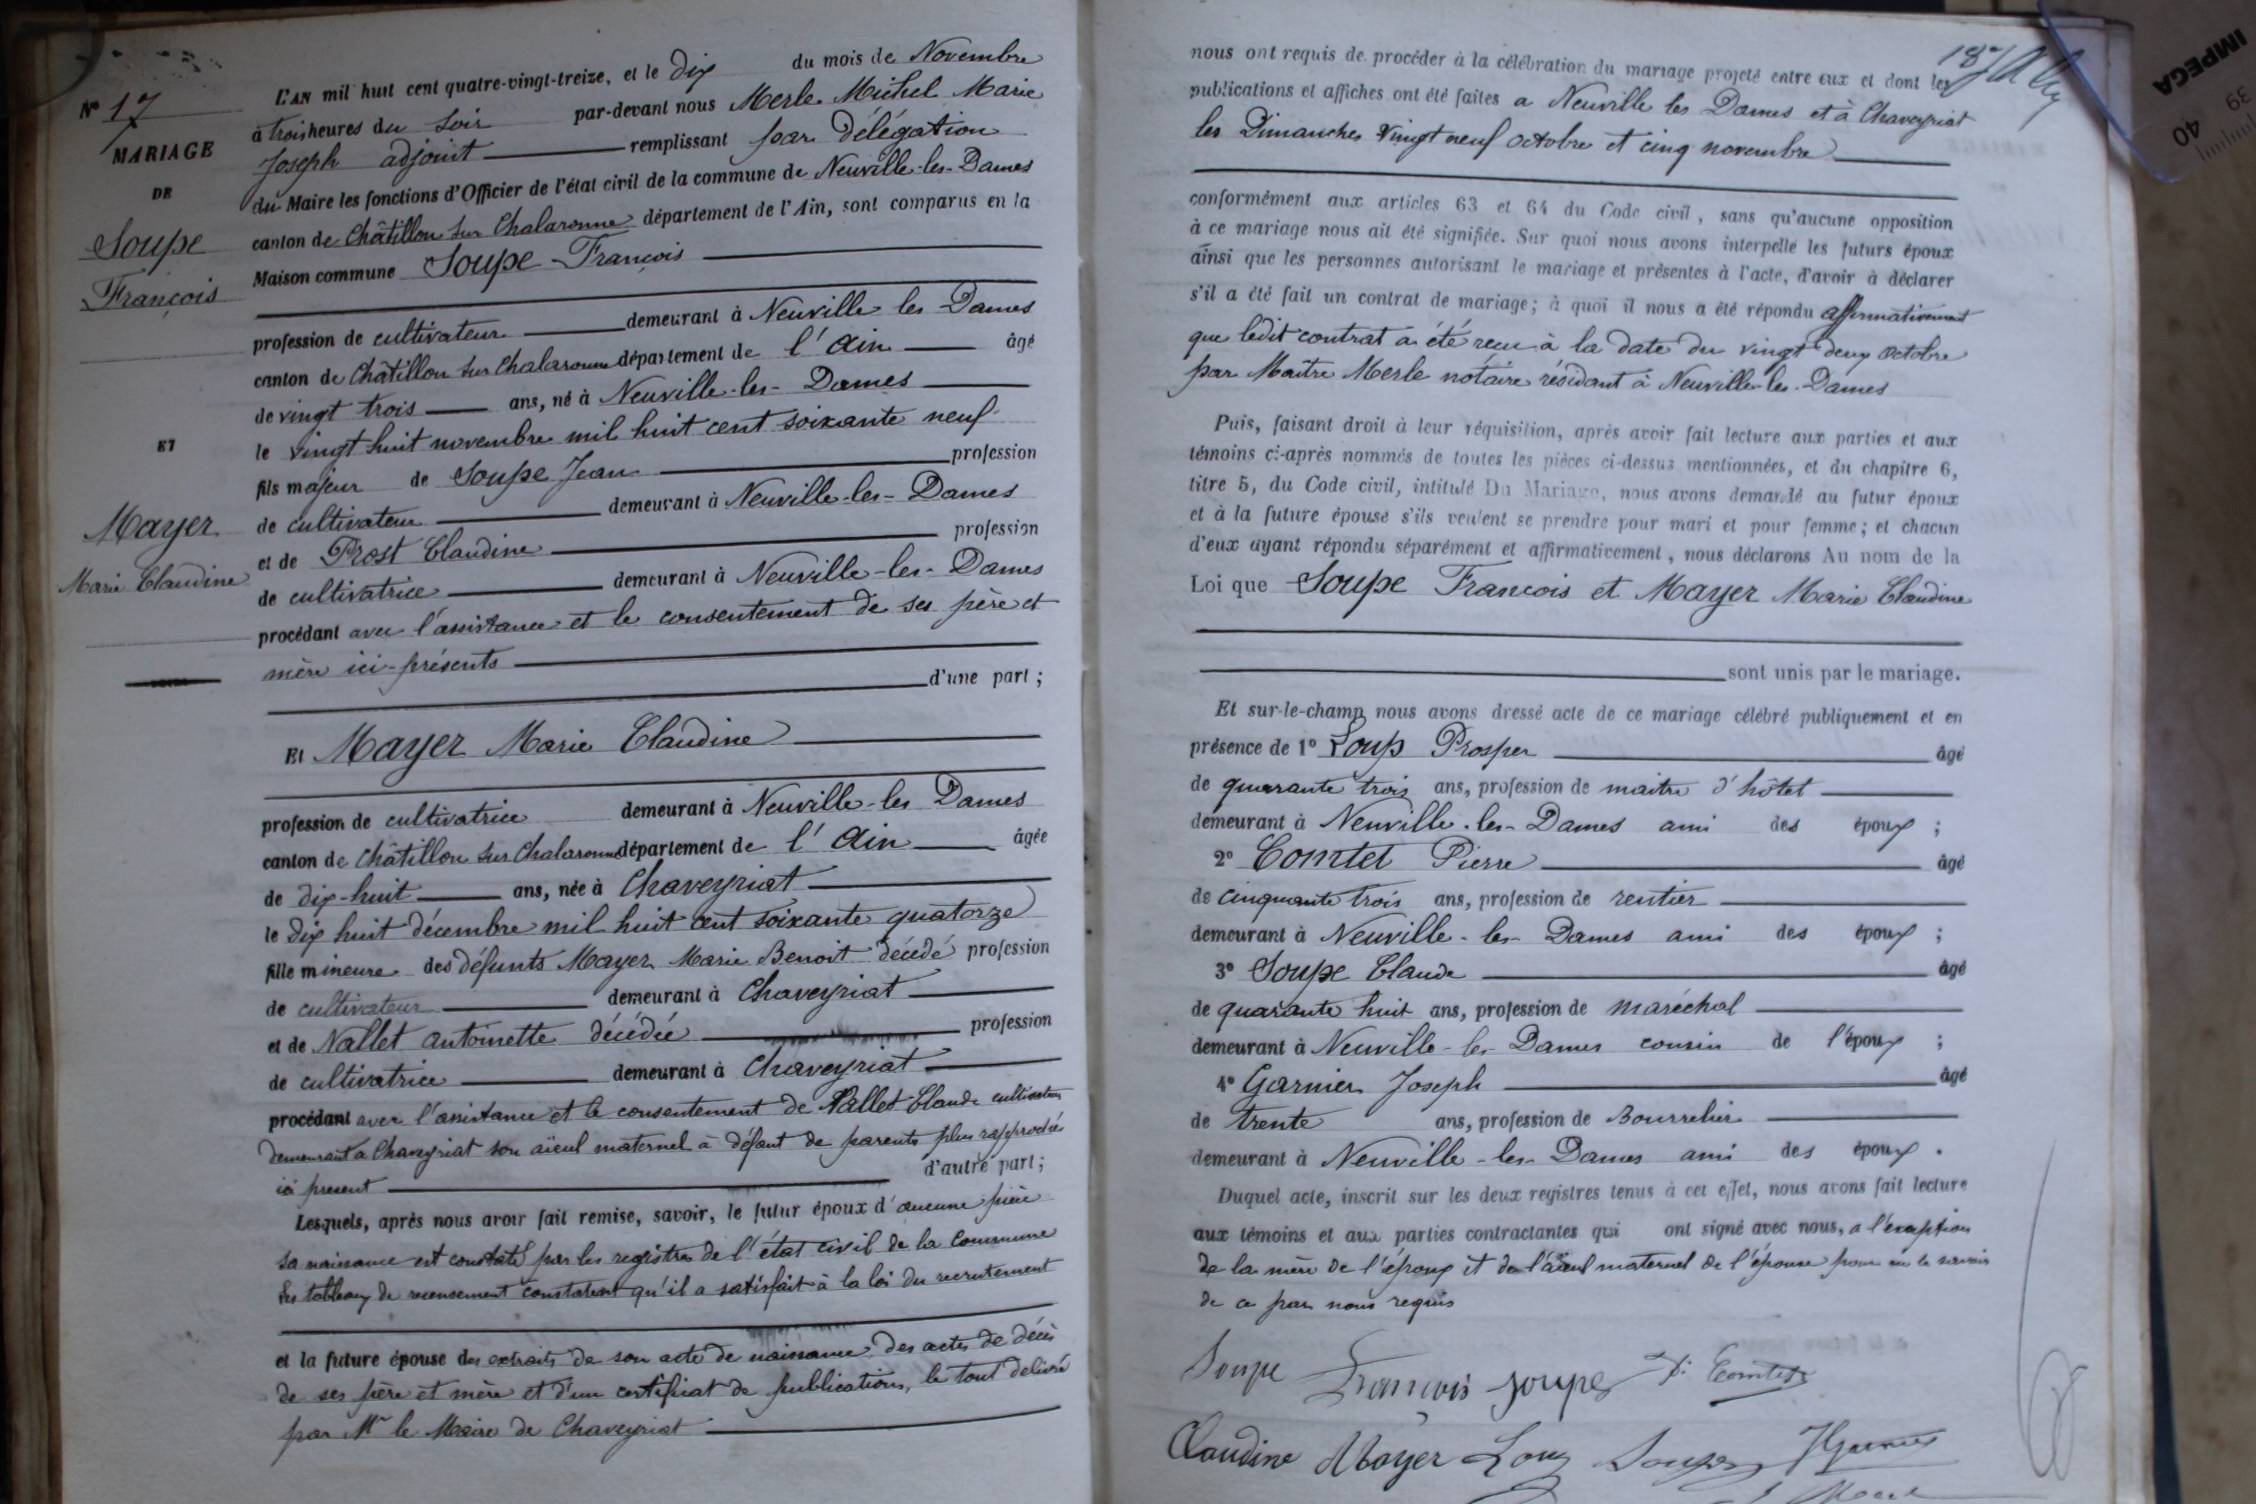 N° 17
MARIAGE
DE
Soupe
François
ET
Mayer
Marie Claudine
L'AN mil huit cent quatre-vingt-treize, et le dix du mois de Novembre
à trois heures du soir par-devant nous Merle Michel Marie
Joseph adjoint remplissant par délégation
du Maire les fonctions d'Officier de l'état civil de la commune de Neuville-les-Dames
canton de Châtillon sur Chalaronne département de l'Ain, sont comparus en la
Maison commune Soupe François
profession de cultivateur demeurant à Neuville les Dames
canton de Châtillon sur Chalaronne département de l'Ain âgé
de vingt trois ans, né à Neuville-les-Dames
le vingt huit novembre mil huit cent soixante neuf
fils majeur de Soupe Jean profession
de cultivateur demeurant à Neuville-les-Dames
et de Prost Claudine profession
de cultivatrice demeurant à Neuville-les-Dames
procédant avec l'assistance et le consentement de ses père et
mère ici-présents
d'une part ;
Et Mayer Marie Claudine
profession de cultivatrice demeurant à Neuville-les Dames
canton de Châtillon sur Chalaronne département de l'Ain âgée
de dix-huit ans, née à Chaveyriat
le dix huit décembre mil huit cent soixante quatorze
fille mineure des défunts Mayer Marie Benoit décédé profession
de cultivateur demeurant à Chaveyriat
et de Nallet antoinette décédée profession
de cultivatrice demeurant à Chaveyriat
procédant avec l'assistance et le consentement de Nallet Claude cultivateur
demeurant à Chaveyriat son aïeul maternel à défaut de parents plus rapprochés
ici présent d'autre part ;
Lesquels, après nous avoir fait remise, savoir, le futur époux d'aucune pièce
sa naissance est constaté par les registres de l'état civil de la Commune
Les tableaux de recensement constatent qu'il a satisfait à la loi du recrutement
et la future épouse des extraits de son acte de naissance des actes de décès
de ses père et mère et d'un certificat de publications, le tout delivré
par Mr le Maire de Chaveyriat
187
nous ont requis de procéder à la célébration du mariage projeté entre eux et dont les
publications et affiches ont été faites a Neuville les Dames et à Chaveyriat
les Dimanches vingt neuf octobre et cinq novembre
conformément aux articles 63 et 64 du Code civil, sans qu'aucune opposition
à ce mariage nous ait été signifiée. Sur quoi nous avons interpellé les futurs époux
ainsi que les personnes autorisant le mariage et présentes à l'acte, d'avoir à déclarer
s'il a été fait un contrat de mariage ; à quoi il nous a été répondu affirmativement
que ledit contrat a été reçu à la date du vingt deux octobre
par Maître Merle notaire résidant à Neuville-les-Dames
Puis, faisant droit à leur réquisition, après avoir fait lecture aux parties et aux
témoins ci-après nommés de toutes les pièces ci-dessus mentionnées, et du chapitre 6,
titre 5, du Code civil, intitulé Du Mariage, nous avons demandé au futur époux
et à la future épouse s'ils veulent se prendre pour mari et pour femme ; et chacun
d'eux ayant répondu séparément et affirmativement, nous déclarons Au nom de la
Loi que Soupe François et Mayer Marie Claudine
sont unis par le mariage.
Et sur-le-champ nous avons dressé acte de ce mariage célébré publiquement et en
présence de 1° Loup Prosper âgé
de quarante trois ans, profession de maitre d'hôtel
demeurant à Neuville-les-Dames ami des époux ;
2° Comtet Pierre âgé
de cinquante trois ans, profession de rentier
demeurant à Neuville-les-Dames ami des époux ;
3° Soupe Claude âgé
de quarante huit ans, profession de maréchal
demeurant à Neuville-les-Dames cousin de l'époux ;
4° Garnier Joseph âgé
de trente ans, profession de Bourrelier
demeurant à Neuville-les-Dames ami des époux .
Duquel acte, inscrit sur les deux registres tenus à cet effet, nous avons fait lecture
aux témoins et aux parties contractantes qui ont signé avec nous, a l'exception
de la mère de l'époux et de l'aïeul maternel de l'épouse pour ne le savoir
de ce par nous requis
Soupe François Soupe P. Comtet
Claudine Mayer Loup Soupe J Garnier
IMPEGA
39
40